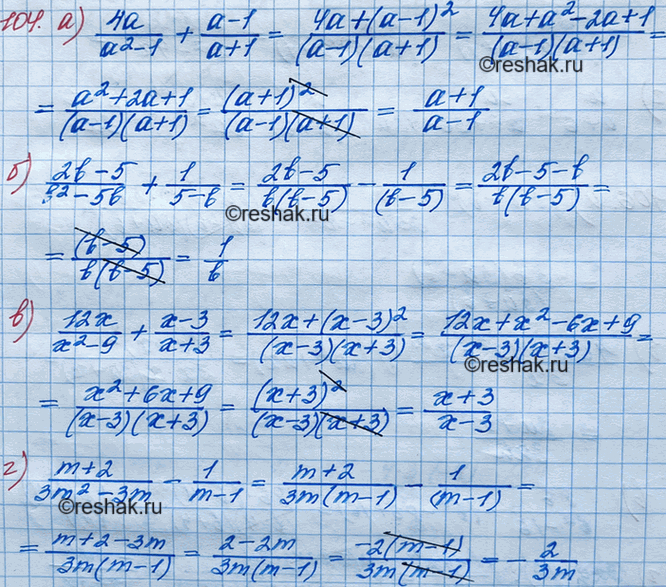 104. а) 4a/(a²-1) + (a-1)/(a+1) = (4a+(a-1)²)/((a-1)(a+1)) = (4a+a²-2a+1)/((a-1)(a+1)) =
©reshak.ru
= (a²+2a+1)/((a-1)(a+1)) = (a+1)²/((a-1)(a+1)) = (a+1)/(a-1)
б) (2b-5)/(b²-5b) + 1/(5-b) = (2b-5)/(b(b-5)) - 1/(b-5) = (2b-5-b)/(b(b-5)) =
©reshak.ru
= (b-5)/(b(b-5)) = 1/b
в) 12x/(x²-9) + (x-3)/(x+3) = (12x+(x-3)²)/((x-3)(x+3)) = (12x+x²-6x+9)/((x-3)(x+3)) =
©reshak.ru
= (x²+6x+9)/((x-3)(x+3)) = (x+3)²/((x-3)(x+3)) = (x+3)/(x-3)
г) (m+2)/(3m²-3m) - 1/(m-1) = (m+2)/(3m(m-1)) - 1/(m-1) =
©reshak.ru
= (m+2-3m)/(3m(m-1)) = (2-2m)/(3m(m-1)) = -2(m-1)/(3m(m-1)) = -2/(3m)